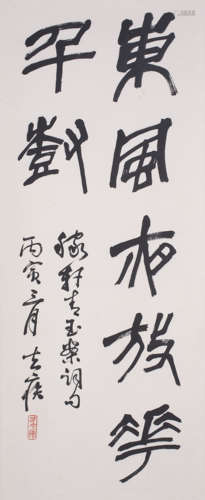 東風夜放花
千樹
稼軒青玉案詞句
丙寅三月